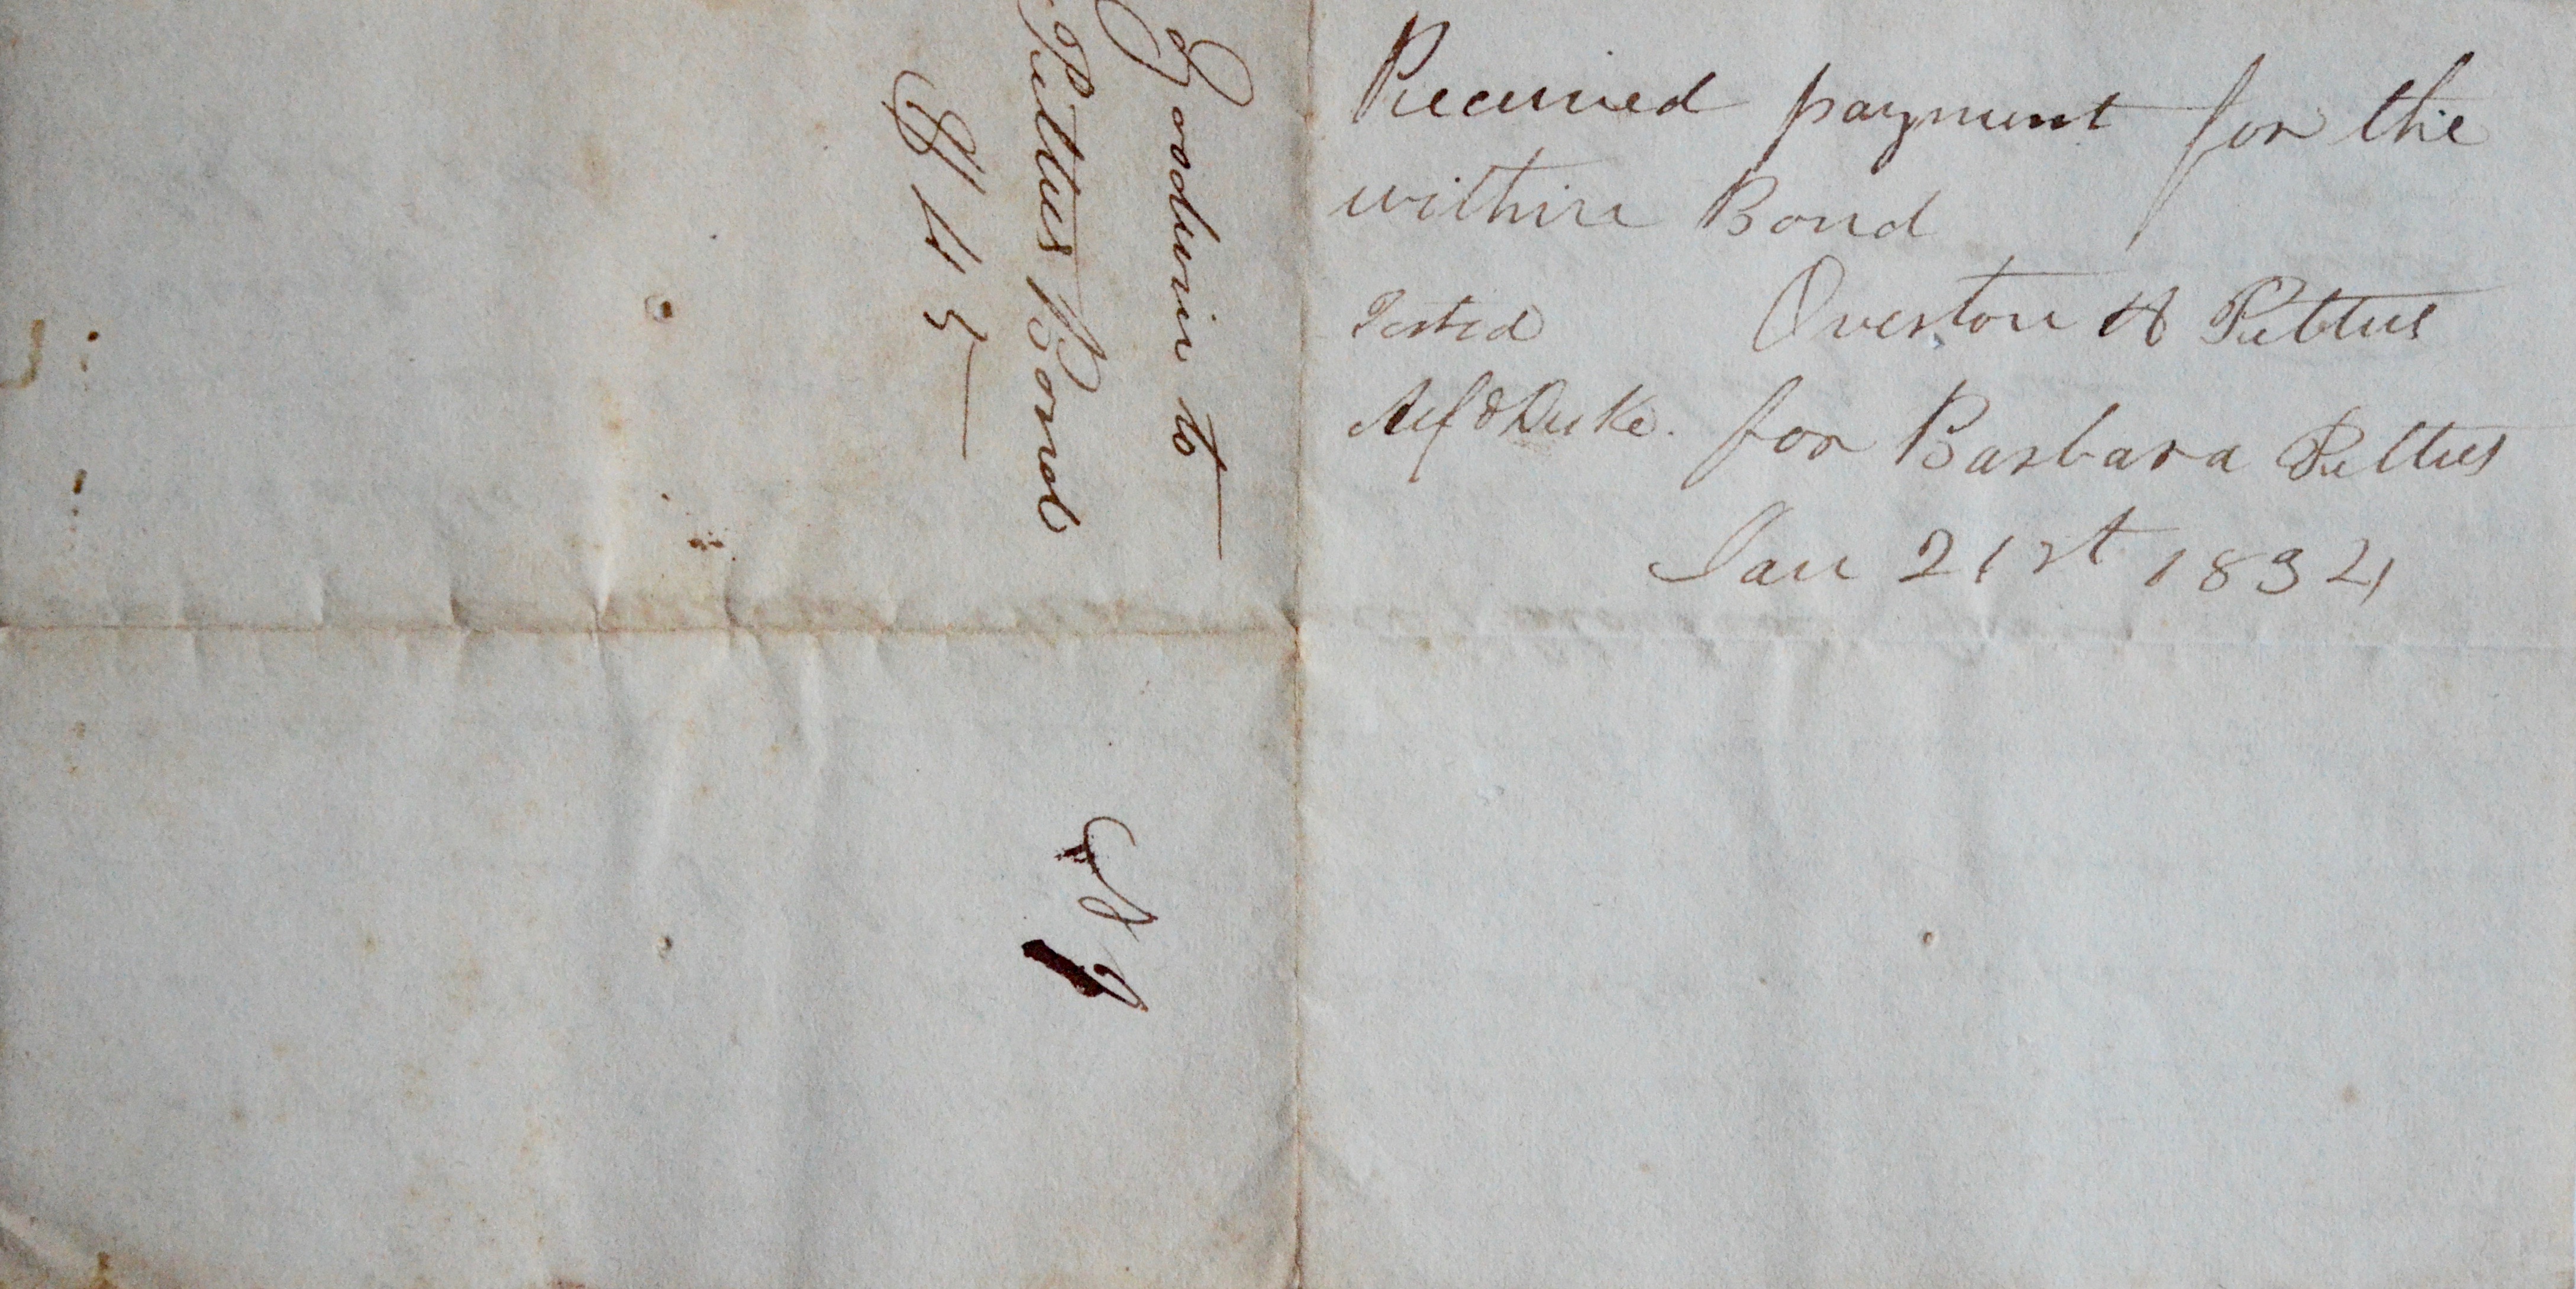 Received payment for the
within Bond
Tested Overton H Pettus
Alfd Duke. for Barbara Pettus
Jan 21st 1834
Goodwin to
Pettus Bond
$45